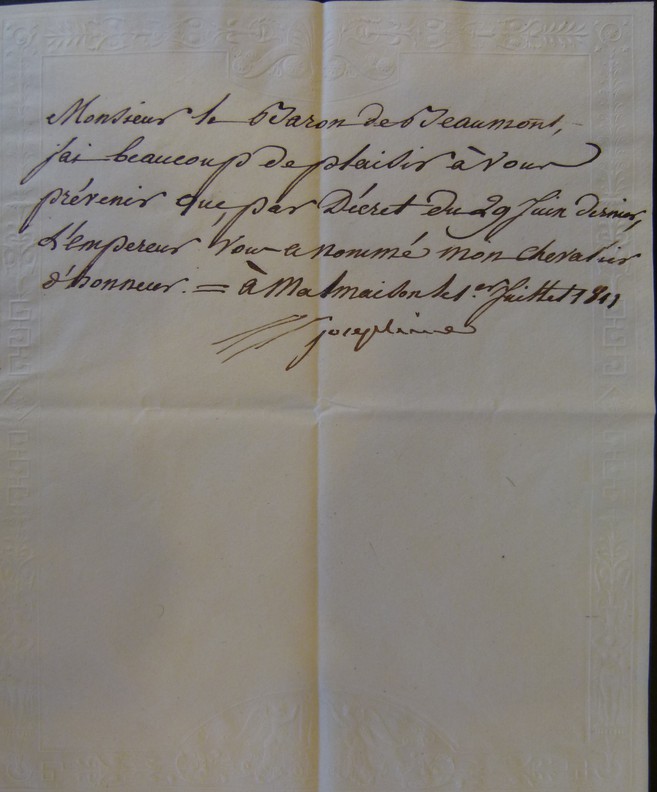 Monsieur le Baron de Beaumont,
j'ai beaucoup de plaisir à vous
prévenir que, par Décret du 29 Juin dernier,
L'empereur vous a nommé mon chevalier
d'honneur. = à Malmaison le 1.er Juillet 1811
Josephine